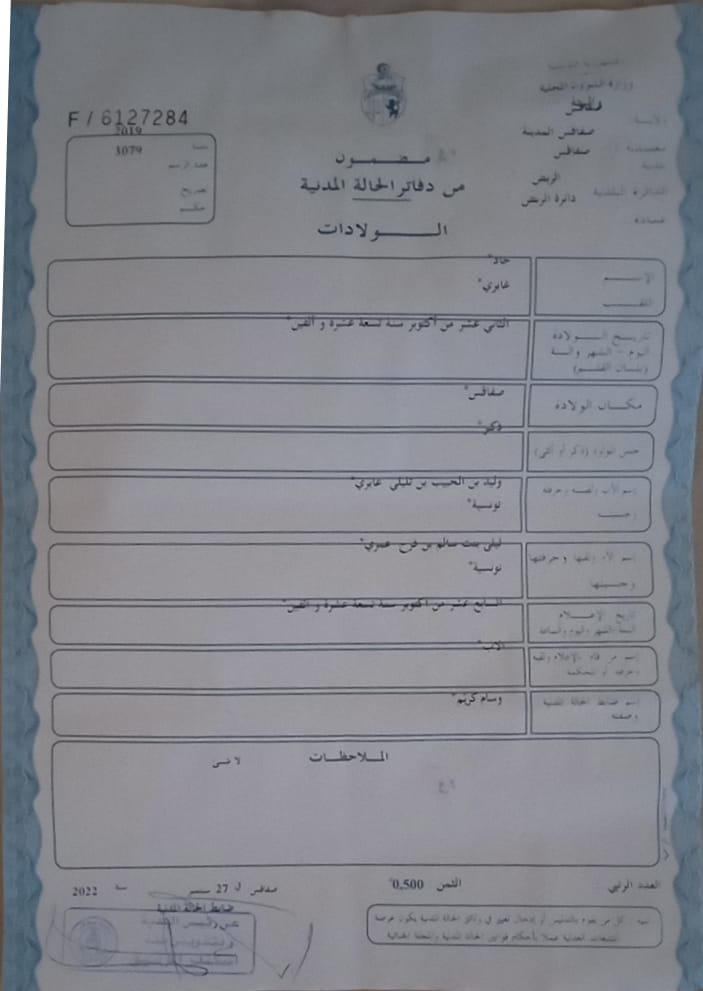 الجمهورية التونسية
وزارة الشؤون المحلية
F / 6127284
ولاية
صفاقس
2019
سنة
3079
عدد الرسم
تصريح
حكم
معتمدية
صفاقس المدينة
بلدية
صفاقس
الدائرة البلدية
الربض
عمادة
دائرة الربض
مضمون
من دفاتر الحالة المدنية
الولادات
الاسم
خالد"
اللقب
غابري"
تاريخ الولادة
اليوم - الشهر والسنة
(بلسان القلم)
الثاني عشر من أكتوبر سنة تسعة عشرة و ألفين"
مكان الولادة
صفاقس"
جنس المولود (ذكر أو أنثى)
ذكر"
إسم الأب ولقبه وحرفته
وليد بن الحبيب بن تليلي غابري"
وجنسيته
تونسية"
إسم الأم ولقبها وحرفتها
ليلى بنت سالم بن فرح عمري"
وجنسيتها
تونسية"
تاريخ الإعلام
السنة الشهر واليوم والساعة
السابع عشر من أكتوبر سنة تسعة عشرة و ألفين"
إسم من قام بالإعلام ولقبه
وحرفته أو المحكمة
الأب"
إسم ضابط الحالة المدنية
وصفته
وسام كريم"
الملاحظات
لا شى
العدد الرتبي
الثمن 0,500"
صفاقس في 27 سبتمبر سنة 2022
ضابط الحالة المدنية
تنبيه : كل من يقوم بالتدليس أو إدخال تغيير في وثائق الحالة المدنية يكون عرضة
للتتبعات العدلية عملا بأحكام قوانين الحالة المدنية والمجلة الجنائية